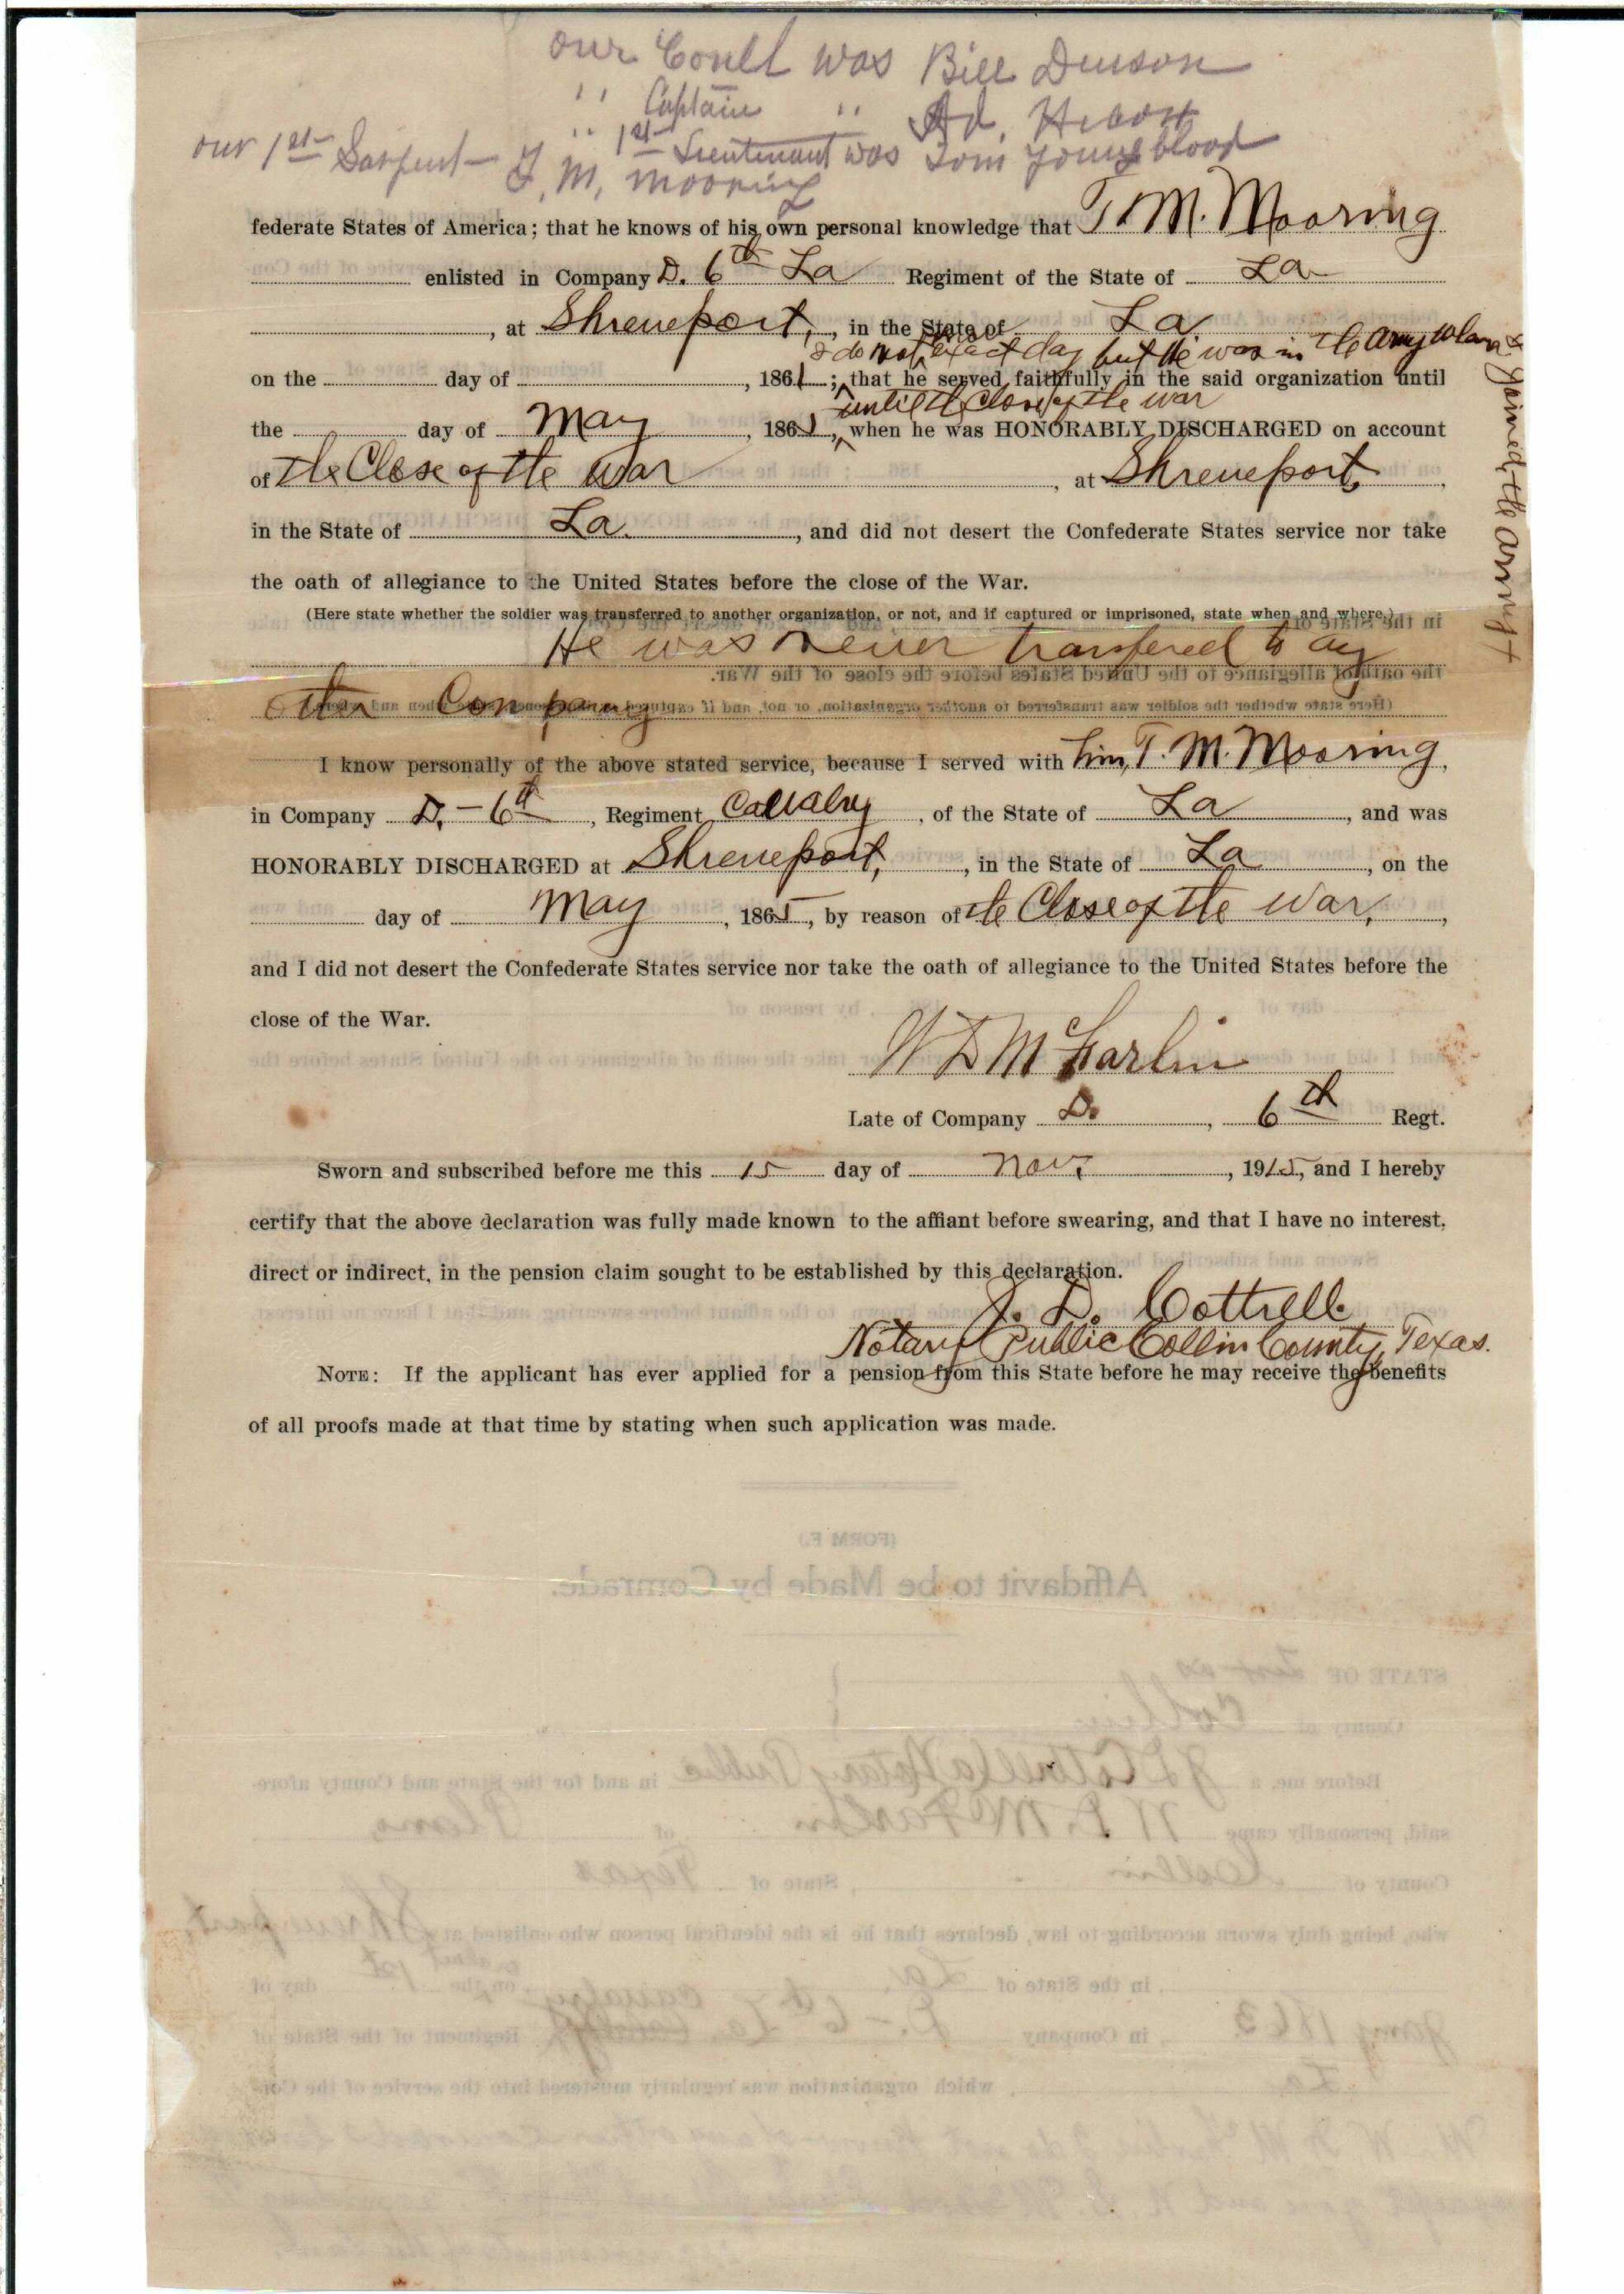 our Conel was Bill Denson
" Captain " Ad.
" 1st Lieutenant was Tom Youngblood
our 1st Sarjent T. M. Mooring
federate States of America; that he knows of his own personal knowledge that T. M. Mooring
enlisted in Company D. 6th La Regiment of the State of La
, at Shreveport, , in the State of La
I do not exact day but he was in the army when I joined the army
on the day of , 1861 ; that he served faithfully in the said organization until
until the close of the war
the day of May , 1865, when he was HONORABLY DISCHARGED on account
of the Close of the War , at Shreveport, ,
in the State of La. , and did not desert the Confederate States service nor take
the oath of allegiance to the United States before the close of the War.
(Here state whether the soldier was transferred to another organization, or not, and if captured or imprisoned, state when and where.)
He was never transfered to any
other Company
I know personally of the above stated service, because I served with him, T. M. Mooring,
in Company D. - 6th , Regiment Cavalry , of the State of La , and was
HONORABLY DISCHARGED at Shreveport, , in the State of La , on the
day of May , 1865 , by reason of the Close of the War, ,
and I did not desert the Confederate States service nor take the oath of allegiance to the United States before the
close of the War.
W D McFarlin
Late of Company D. , 6th Regt.
Sworn and subscribed before me this 15 day of Nov, , 1915, and I hereby
certify that the above declaration was fully made known to the affiant before swearing, and that I have no interest,
direct or indirect, in the pension claim sought to be established by this declaration.
J. D. Cottrell
Notary Public Collin County, Texas.
NOTE: If the applicant has ever applied for a pension from this State before he may receive the benefits
of all proofs made at that time by stating when such application was made.